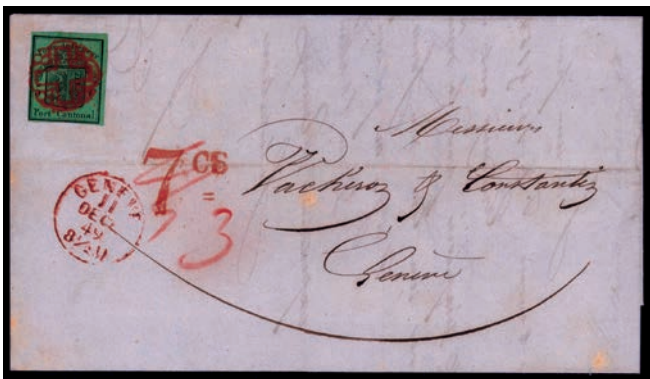 Port Cantonal
7 CS
=
3
GENEVE
11
DECE
49
8½M
Messieurs
Vacheron & Constantin
Genève